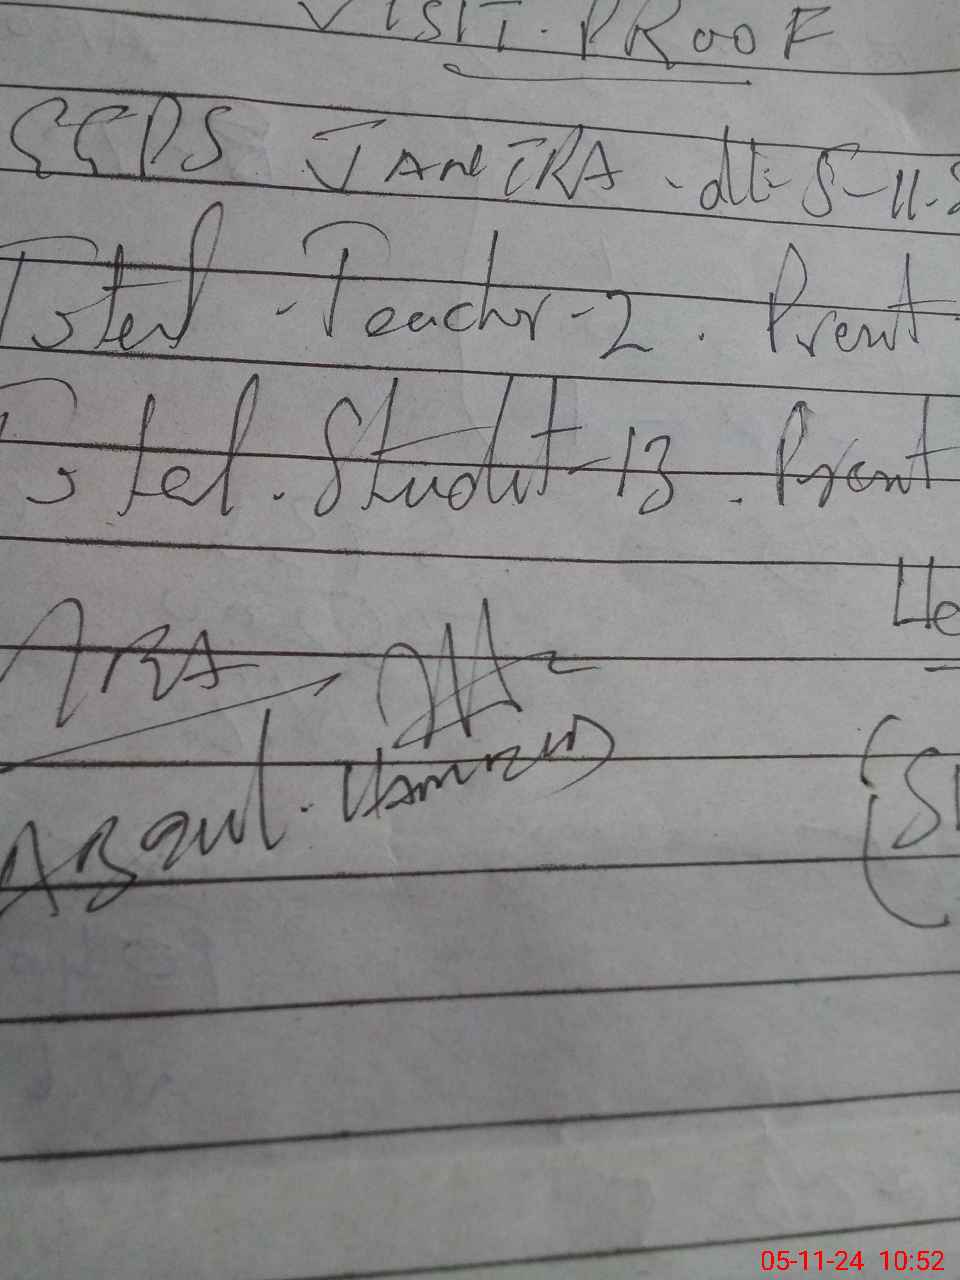 VISIT. PROOF
GGPS JANTRA - dt: 5-11-2
Total - Teacher - 2 . Prent
Total . Studnt - 13 . Prent
He
ARA
Abdul . Hameed
(S
05-11-24 10:52